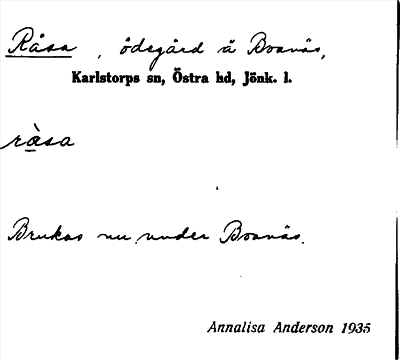 Råsa, ödegård å Boanäs,
Karlstorps sn, Östra hd, Jönk. l.
ràsa
Brukas nu under Boanäs.
Annalisa Anderson 1935